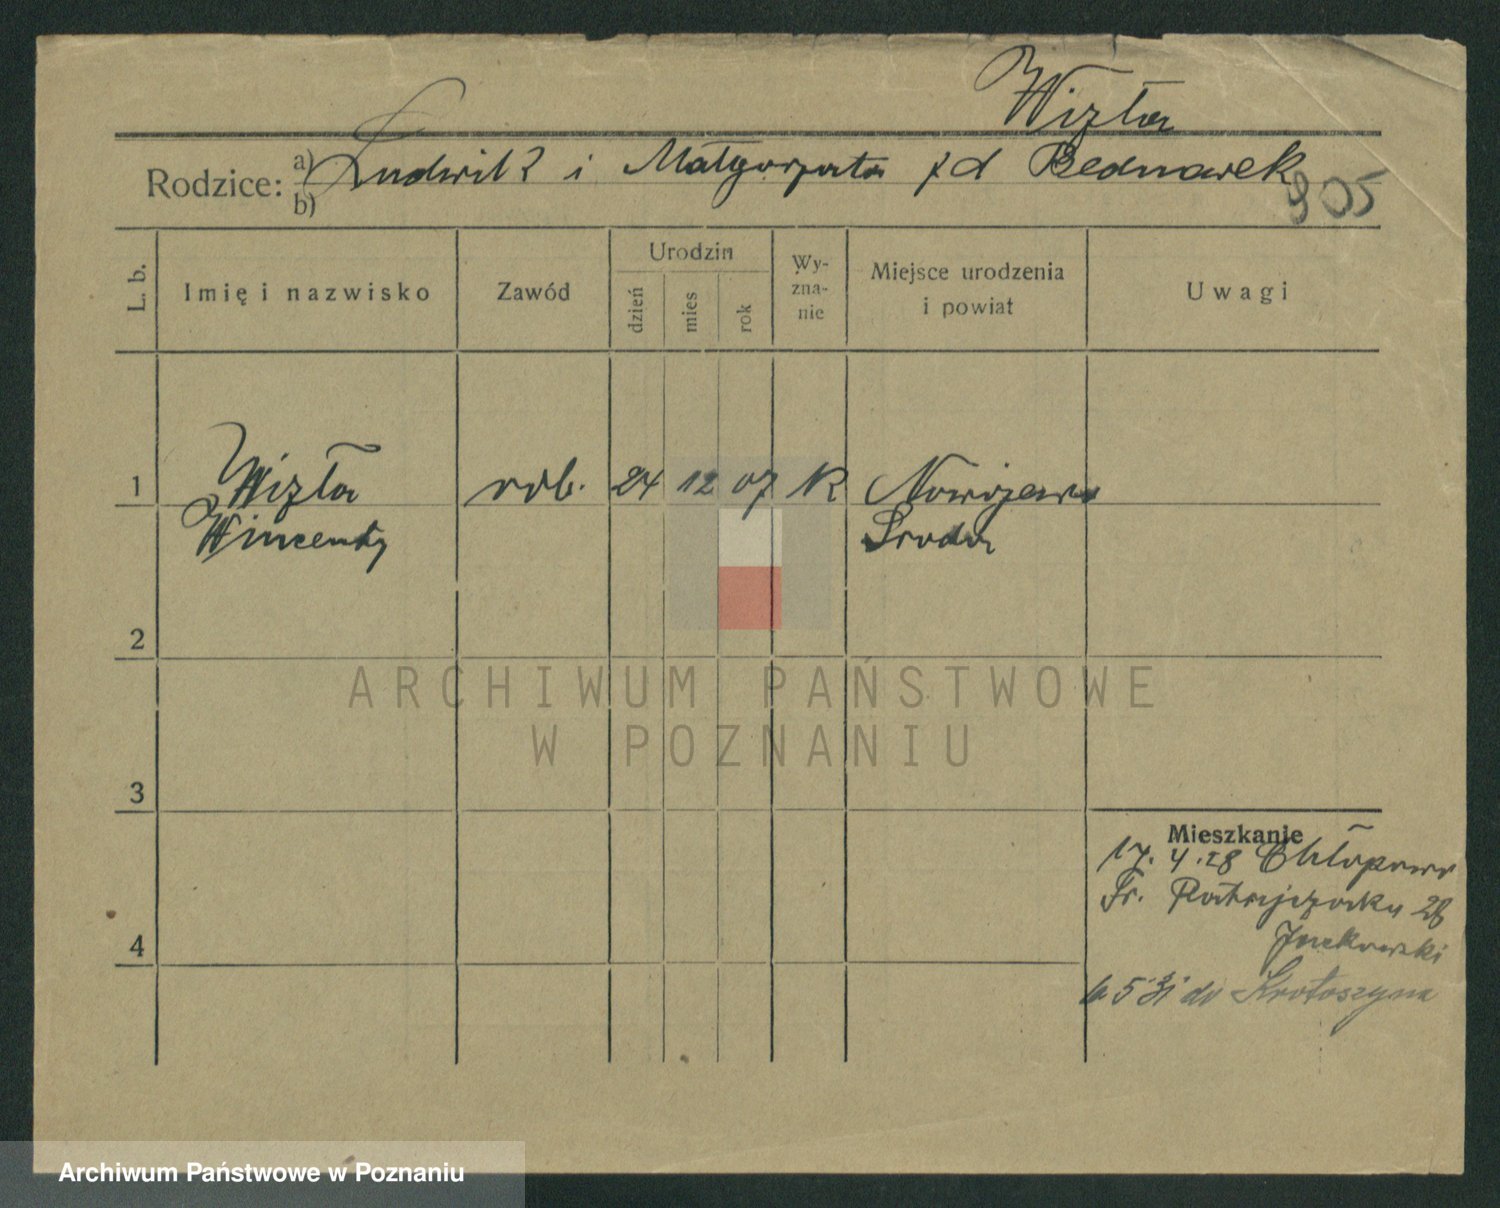 Wizła
Rodzice: a) Ludwik i Małgorzata z d Bednarek
b)
905
L. b. Imię i nazwisko Zawód Urodzin dzień mies rok Wy-zna-nie Miejsce urodzenia i powiat Uwagi
1 Wizła rob. 24 12 07 K
Wincenty Środa
2
ARCHIWUM PAŃSTWOWE
W POZNANIU
3
Mieszkanie
17. 4. 28
Fr. Ratajczaka 28
4
5. do Krotoszyna
Archiwum Państwowe w Poznaniu